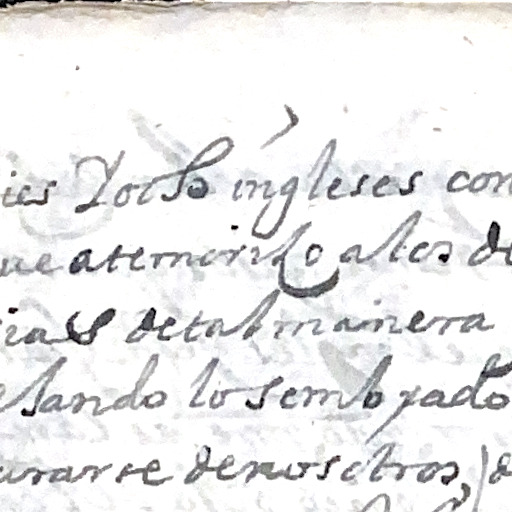 ies Yocho íngleses con
ue atemorizo a los de
ias de tal manera
elando lo sembrado
urarse de nosotros, d